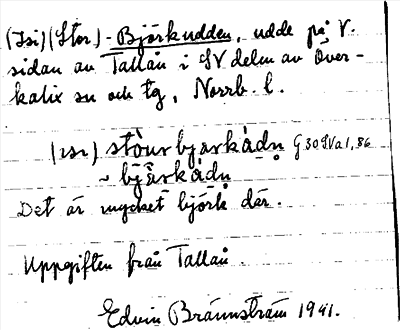 (Isi)(Stor)-Björkudden, udde på V.
sidan av Tallån i SV delen av Över-
kalix sn och tg, Norrb. l.
(ısı) stòurbjarkàdn̥ G 30 SVa 1, 86
~ bjä̀rkàdn̥
Det är mycket björk där.
Uppgiften från Tallån.
Edvin Brännström 1941.